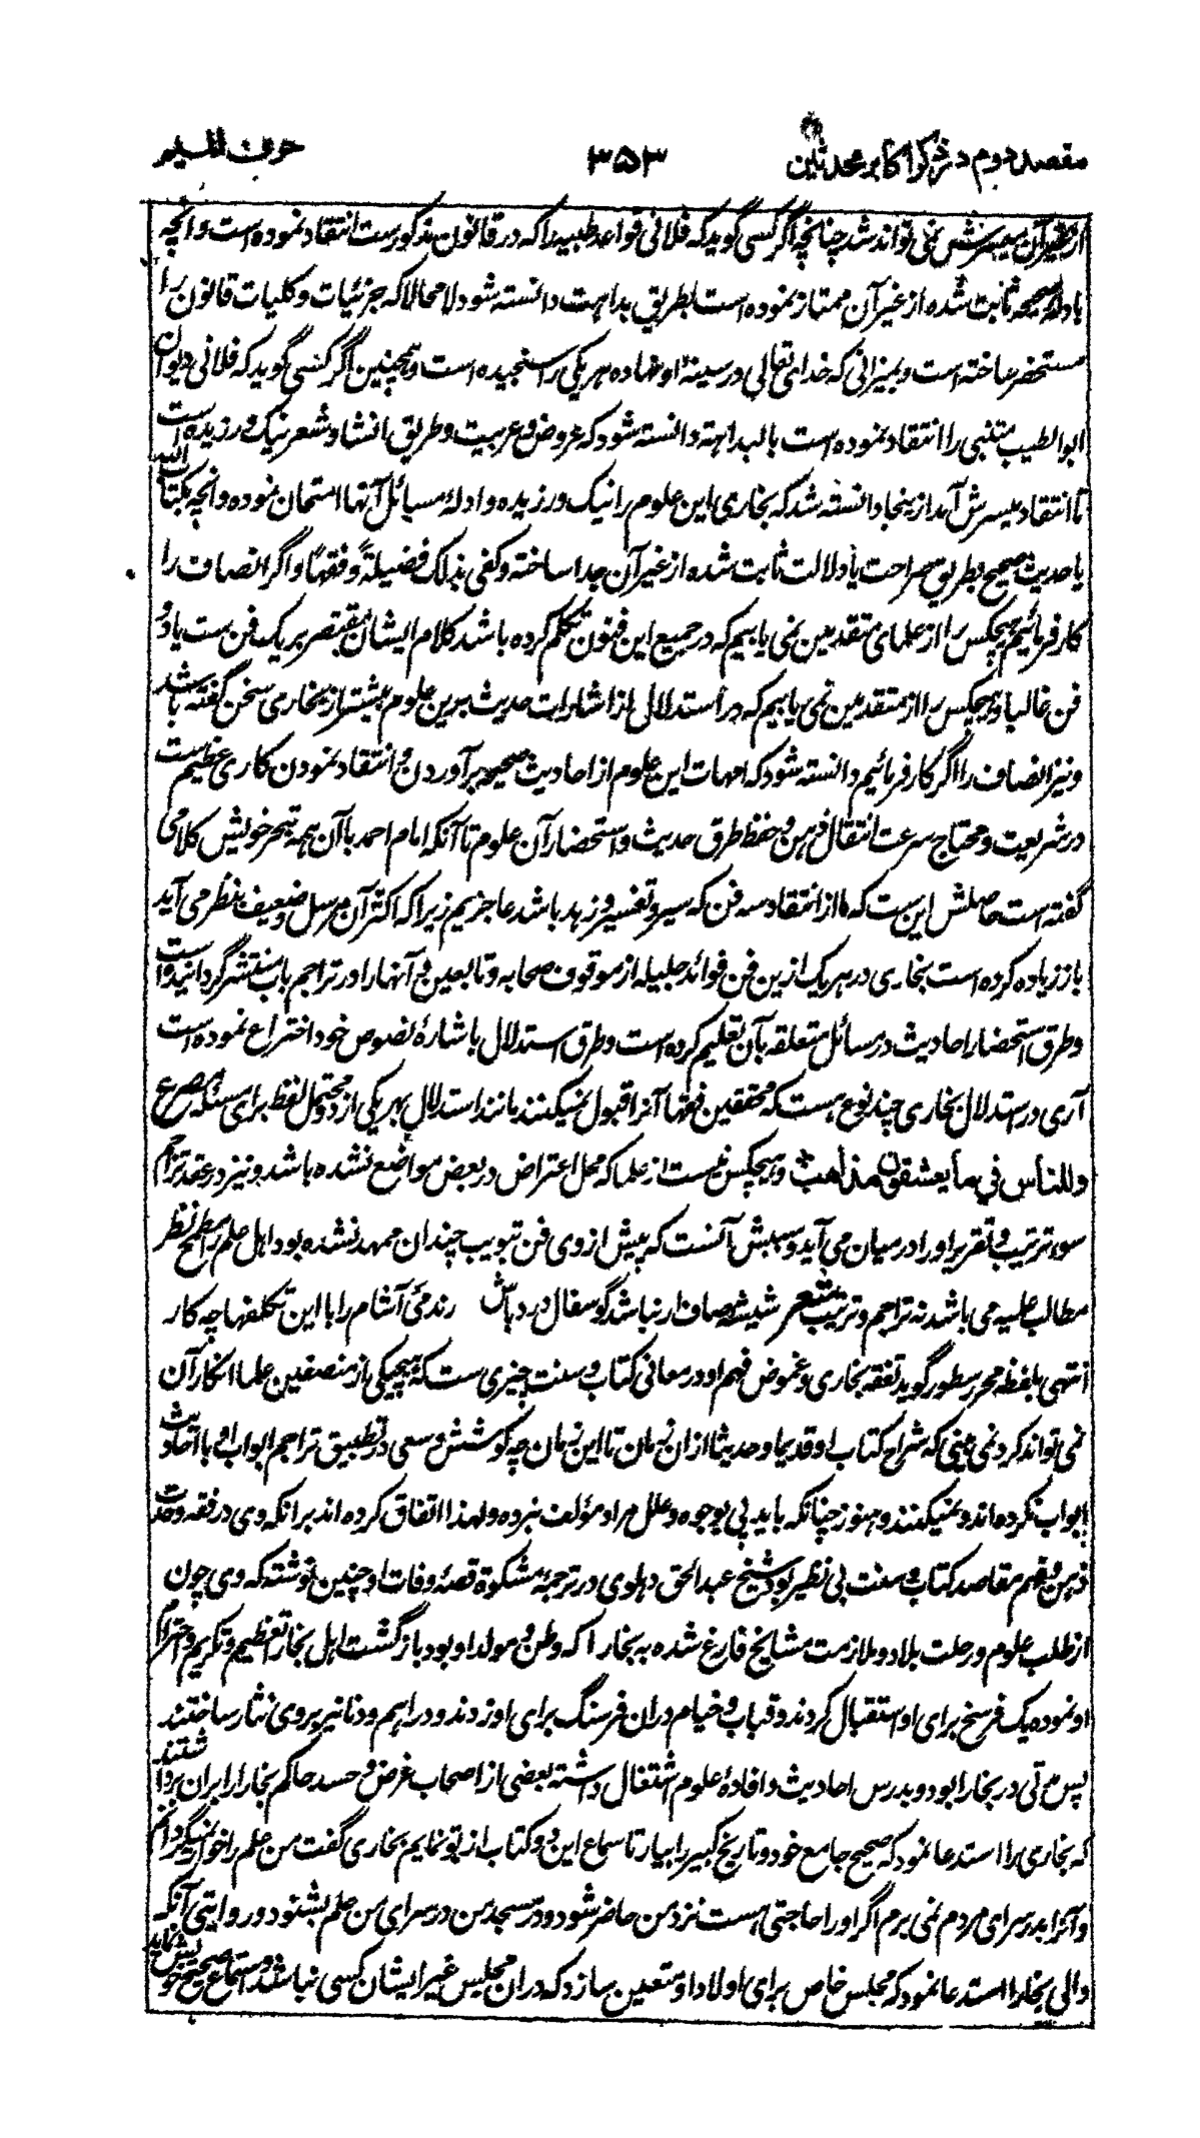 مقصد دوم در ذکر اکابر محدثین ۳۵۳ حرف المیم
از نظیر آن میسرش نمی تواند شد چنانچه اگر کسی گوید که فلانی قواعد طبیه را که در قانون مذکورست انتقاد نموده است و آنچه
بادله صحیحه ثابت شده از غیر آن ممتاز نموده است بطریق بداهت دانسته شود لا محالا که جزئیات و کلیات قانون را
مستحضر ساخته است و بمیزانی که خدای تعالی در سینۀ او نهاده هر یکی را سنجیده است و همچنین اگر کسی گوید که فلانی دیوان
ابوالطیب متنبی را انتقاد نموده است بالبداهته دانسته شود که عروض و عربیت و طریق انشا و شعر نیک ورزیده است
تا انتقاد میسرش آمد از ینجا دانسته شد که بخاری این علوم را نیک ورزیده و ادلۀ مسائل آنها امتحان نموده و آنچه بکتاب الله
یا حدیث صحیح بطریق صراحت یا دلالت ثابت شده از غیر آن جدا ساخته و کفی بذلک فضیلة و فقها و اگر انصاف را
کار فرمائیم هیچکس را از علمای متقدمین نمی یابیم که در جمیع این فنون تکلم کرده باشد کلام ایشان مقتصر بر یک فن ست یا دو
فن غالبا و هیچکس را از متقدمین نمی یابیم که در استدلال از اشارات حدیث برین علوم بیشتر از بخاری سخن گفته باشد
و نیز انصاف را اگر کار فرمائیم دانسته شود که امهات این علوم از احادیث صحیحه برآوردن و انتقاد نمودن کاری عظیم ست
در شریعت و محتاج سرعت انتقال ذهن و حفظ طرق حدیث و استحضار آن علوم تا آنکه امام احمد با آن همه تبحر خویش کلامی
گفته است حاصلش این ست که ما از انتقاد سه فن که سیر و تفسیر و زهد باشد عاجزیم زیرا که اکثر آن مرسل و ضعیف بنظر می آید
باز زیاده کرده است بخاری در هر یک ازین فن فوائد جلیله از موقوف صحابه و تابعین و آنها را در تراجم باب منتشر گردانیده است
و طرق استحضار احادیث در مسائل متعلقه بآن تعلیم کرده است و طرق استدلال باشارۀ نصوص خود اختراع نموده است
آری در استدلال بخاری چند نوع هست که محققین فقها آنرا قبول نمیکنند مانند استدلال بهر یکی از دو محتمل لفظ برای مسئله مصرع
و للناس فی ما یعشقون مذاهب و هیچکس نیست از علما که محل اعتراض در بعض مواضع نشده باشد و نیز در عقد تراجم
سوء ترتیب و تقریر او را در میان می آید و سببش آنست که پیش از وی فن تبویب چندان ممهد نشده بود و اهل علم را مطمح نظر
مطالب علمیه می باشد نه تراجم و ترتیب شعر شیشه صاف ار نباشد گو سفال درد باش رند می آشام را با این تکلفها چه کار
انتهی بلفظه محرر سطور گوید تفقه بخاری و غموض فهم او در معانی کتاب و سنت چیزی ست که هیچیکی از منصفین علما انکار آن
نمی تواند کرد نمی بینی که شراح کتاب او قدیما و حدیثا از ان زمان تا این زمان چه کوشش و سعی در تطبیق تراجم ابواب او با احادیث
ابواب نکرده اند و نمیکنند و هنوز چنانکه باید پی بوجوه و علل مراد مؤلف نبرده و لهذا اتفاق کرده اند بر آنکه وی در فقه و حدت
ذهن و فهم مقاصد کتاب و سنت بی نظیر بود شیخ عبدالحق دهلوی در ترجمه مشکوة قصۀ وفات او چنین نوشته که وی چون
از طلب علوم و رحلت بلاد و ملازمت مشایخ فارغ شده به بخارا که وطن و مولد او بود بازگشت اهل بخارا تعظیم و تکریم و احترام
او نموده یک فرسخ برای او استقبال کردند و قباب و خیام دران فرسنگ برای او زدند و دراهم و دنانیر بروی نثار ساختند
پس مدتی در بخارا بود و بدرس احادیث و افادۀ علوم اشتغال داشته بعضی از اصحاب غرض و حسد حاکم بخارا را بران برداشتند
که بخاری را استدعا نمود که صحیح جامع خود و تاریخ کبیر را بیار تا سماع این دو کتاب از تو نمایم بخاری گفت من علم را خوار نمیگردانم
و آنرا بدر سرای مردم نمی برم اگر او را حاجتی هست نزد من حاضر شود و در مسجد من در سرای من علم بشنود و در روایتی آنکه
والی بخارا استدعا نمود که مجلس خاص برای اولاد او متعین سازد که دران مجلس غیر ایشان کسی نباشد و سماع صحیح خویش نماید